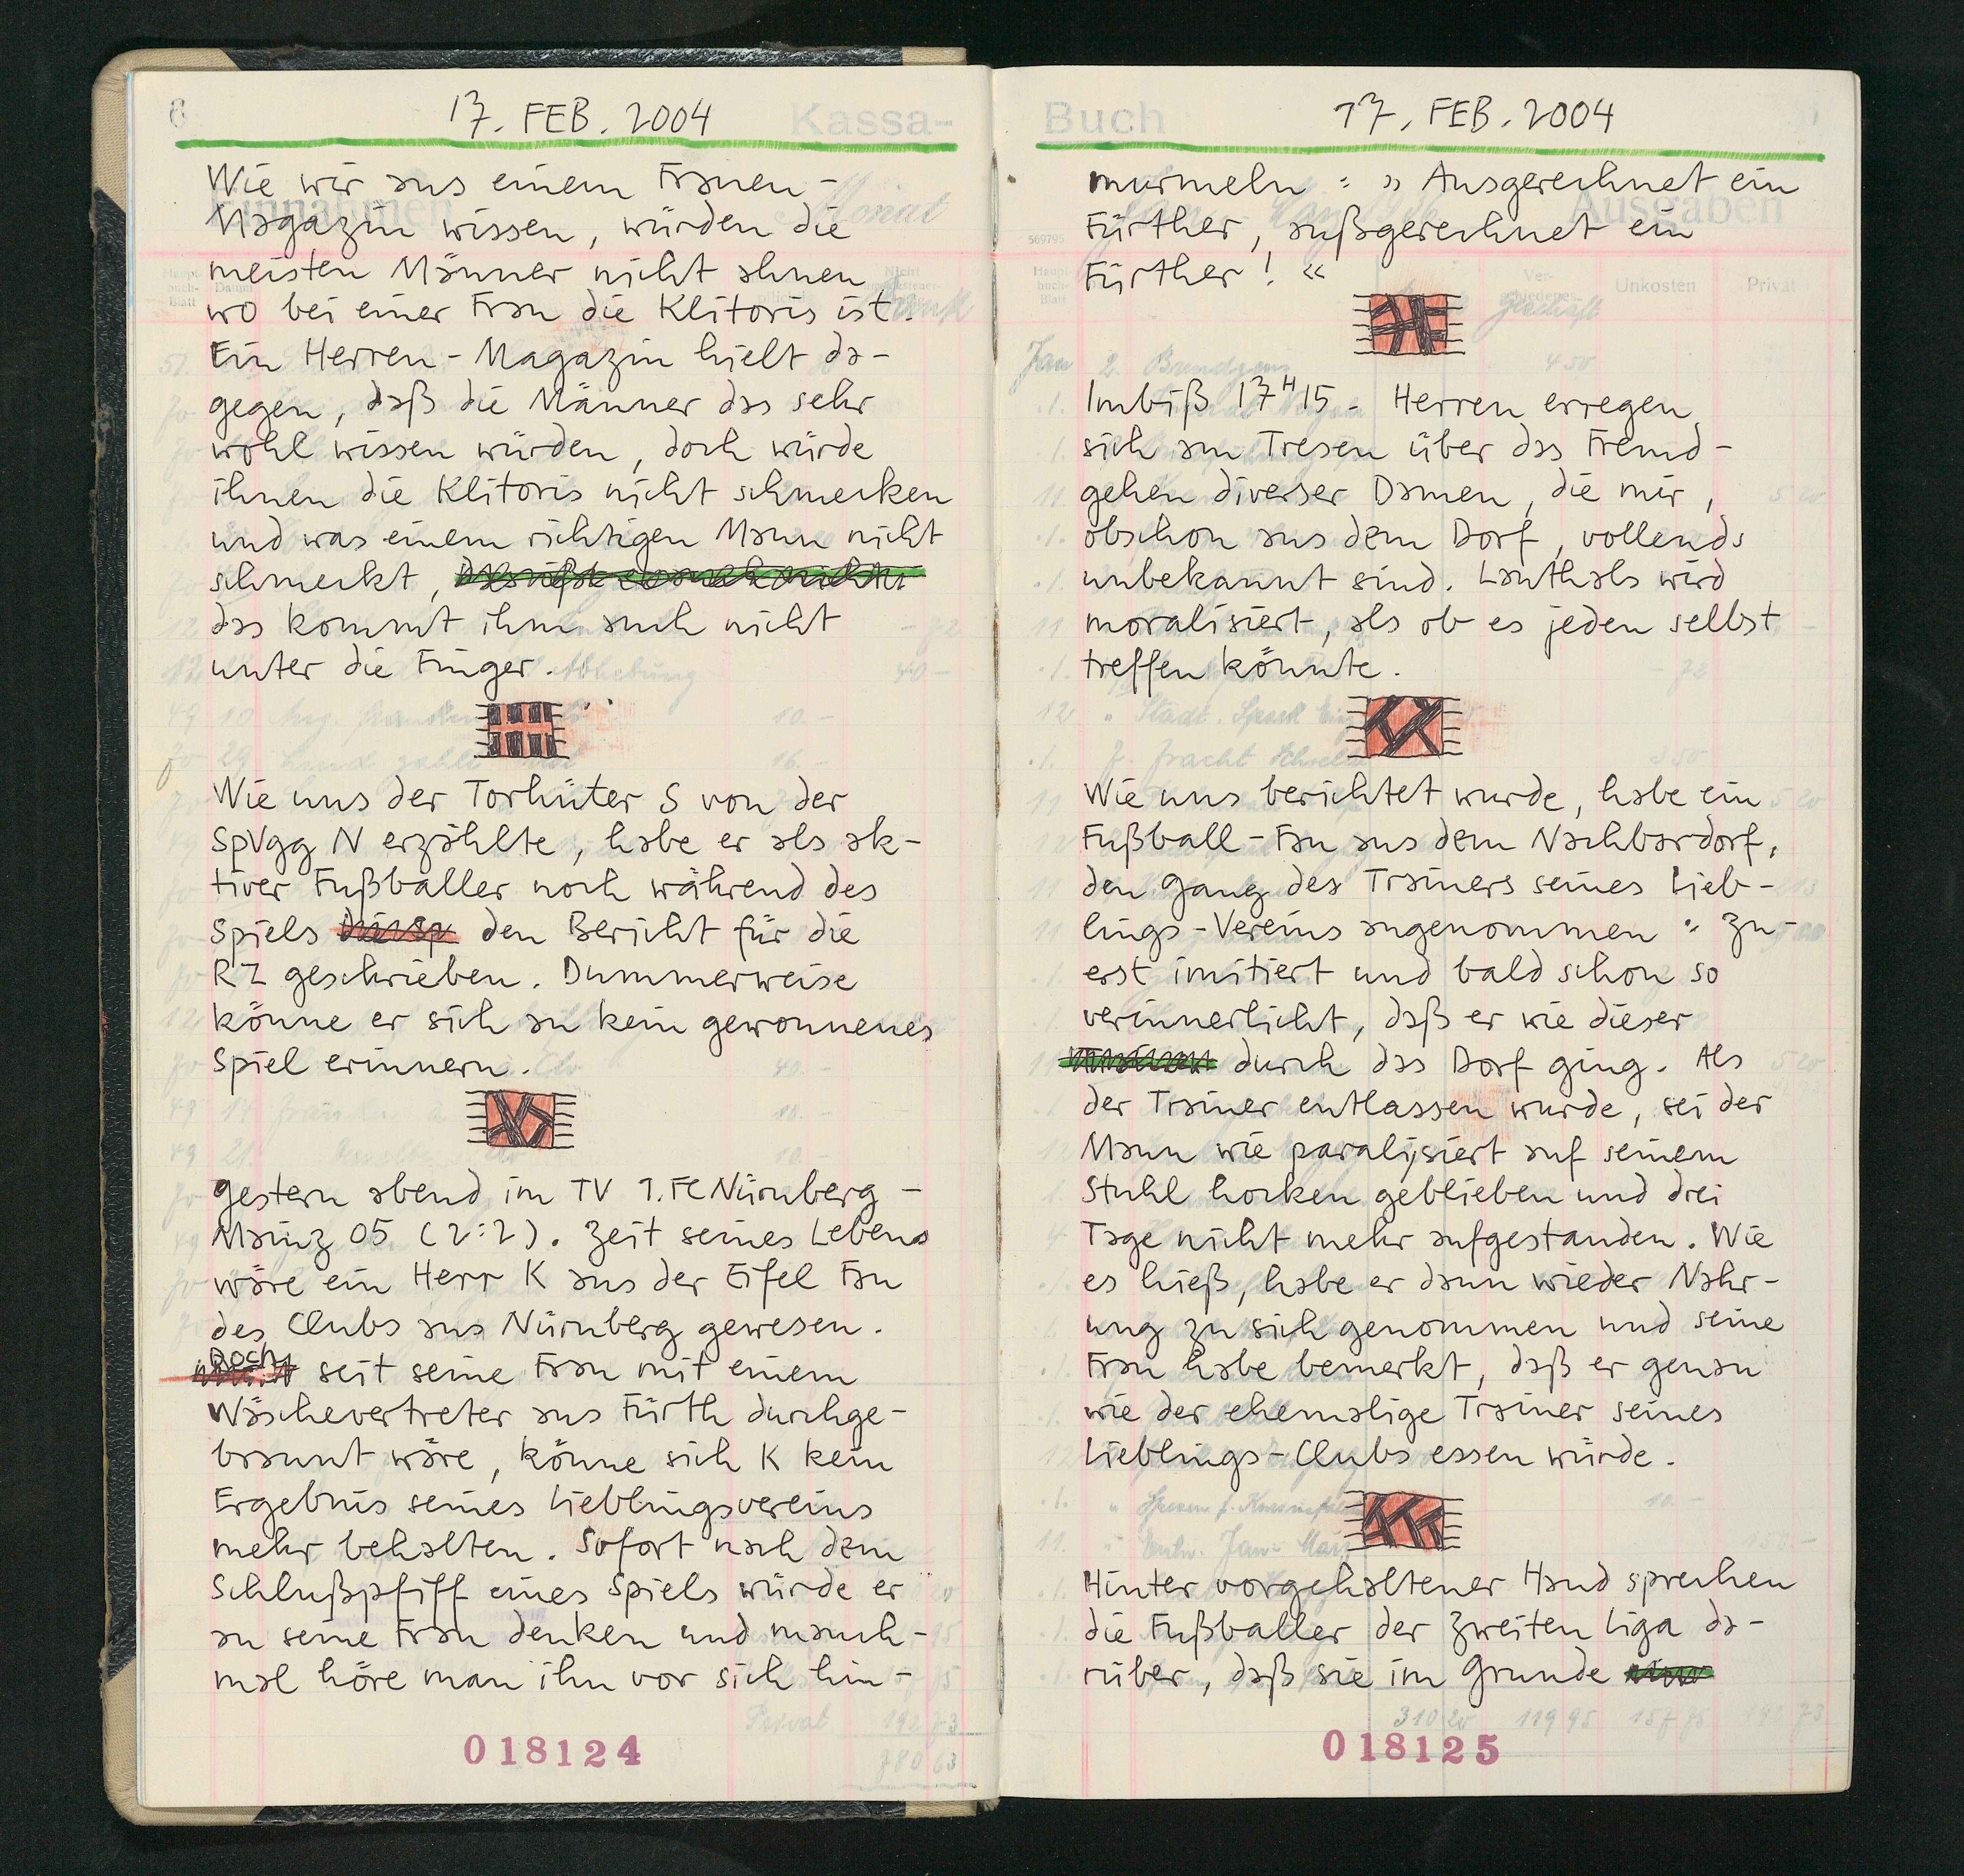 17. FEB. 2004
Kassa-
Wie wir aus einem Frauen-
Magazin wissen, würden die
meisten Männer nicht ahnen
wo bei einer Frau die Klitoris ist.
Ein Herren-Magazin hielt da-
gegen, daß die Männer das sehr
wohl wissen würden, doch würde
ihnen die Klitoris nicht schmecken
und was einem richtigen Mann nicht
schmeckt,
das kommt ihm auch nicht
unter die Finger.
Wie uns der Torhüter S von der
SpVgg N erzählte, habe er als ak-
tiver Fußballer noch während des
Spiels den Bericht für die
RZ geschrieben. Dummerweise
könne er sich an kein gewonnenes
Spiel erinnern.
gestern abend im TV 1. FC Nürnberg -
Mainz 05 (2:2). Zeit seines Lebens
wäre ein Herr K aus der Eifel Fan
des Clubs aus Nürnberg gewesen.
Doch seit seine Frau mit einem
Wäschevertreter aus Fürth durchge-
brannt wäre, könne sich K kein
Ergebnis seines Lieblingsvereins
mehr behalten. Sofort nach dem
Schlußpfiff eines Spiels würde er
an seine Frau denken und manch-
mal höre man ihn vor sich hin-
018124
Buch
17. FEB. 2004
murmeln: »Ausgerechnet ein
Fürther, außgerechnet ein
Fürther!«
Imbiß 17H15. Herren erregen
sich am Tresen über das Fremd-
gehen diverser Damen, die mir,
obschon aus dem Dorf, vollends
unbekannt sind. Lauthals wird
moralisiert, als ob es jeden selbst
treffen könnte.
Wie uns berichtet wurde, habe ein
Fußball-Fan aus dem Nachbardorf,
den Gang des Trainers seines Lieb-
lings-Vereins angenommen: Zu-
erst imitiert und bald schon so
verinnerlicht, daß er wie dieser
durch das Dorf ging. Als
der Trainer entlassen wurde, sei der
Mann wie paralysiert auf seinem
Stuhl hocken geblieben und drei
Tage nicht mehr aufgestanden. Wie
es hieß, habe er dann wieder Nahr-
ung zu sich genommen und seine
Frau habe bemerkt, daß er genau
wie der ehemalige Trainer seines
Lieblings-Clubs essen würde.
Hinter vorgehaltener Hand sprechen
die Fußballer der zweiten Liga da-
rüber, daß sie im Grunde
018125